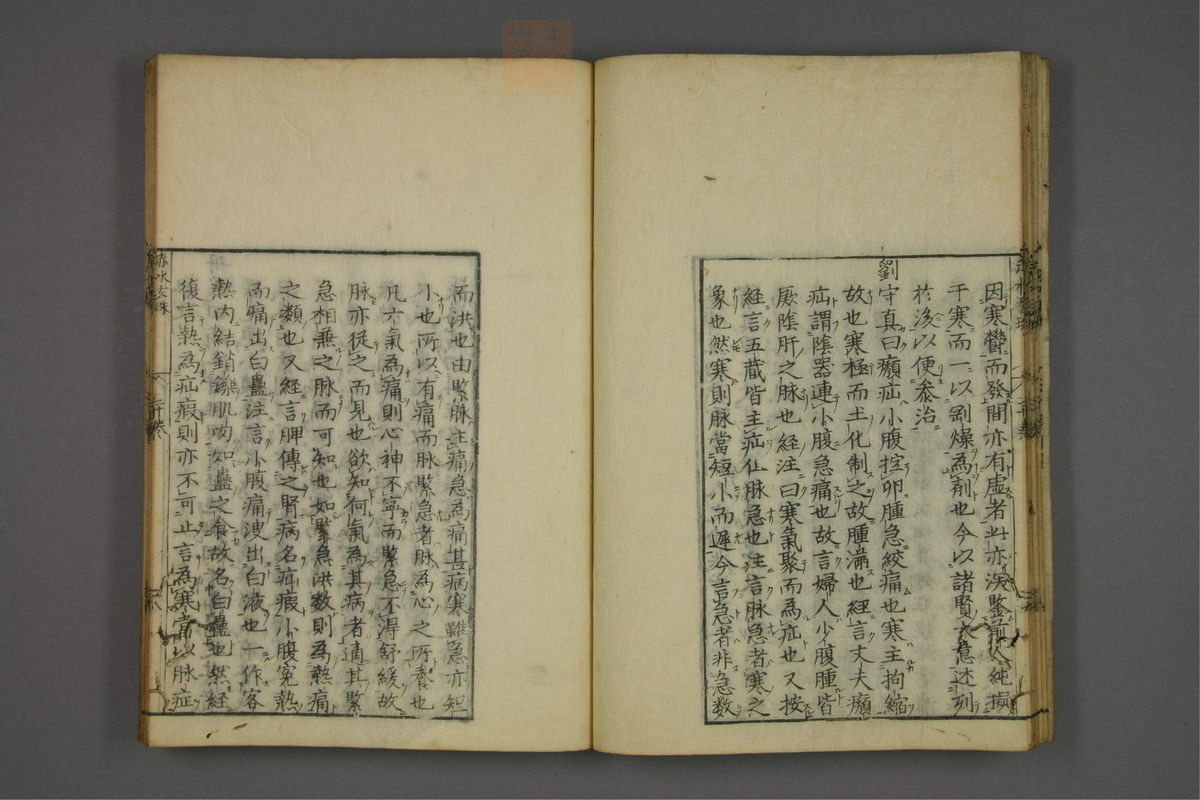 因寒欝而發間亦有虚者此亦深鑒前人純據
于寒而一以剛燥為剤也今以諸賢大意述列
於後以便叅治
劉守真曰癩疝小腹控卵腫急絞痛也寒主拘縮
故也寒極而土化制之故腫滿也經言丈夫癩
疝謂陰器連小腹急痛也故言婦人少腹腫皆
厥陰肝之脉也経注曰寒氣聚而為疝也又按
経言五藏皆主疝但脉急也注言脉急者寒之
象也然寒則脉當短小而遲今言急者非急数
而洪也由緊脉主痛急為痛甚病寒雖急亦短
小也所以有痛而脉緊急者脉為心之所養也
凡六氣為痛則心神不寧而緊急不得舒緩故
脉亦從之而見也欲知何氣為其病者適其緊
急相兼之脉而可知也如緊急洪数則為熱痛
之類也又経言脾傳之腎病名疝瘕小腹冤熱
而痛出白蠱注言小腹痛溲出白液也一作客
熱内結銷鑠肌肉如蠱之食故名白蠱也然経
復言熱為疝瘕則亦不可止言為寒當以脉症
赤水玄珠